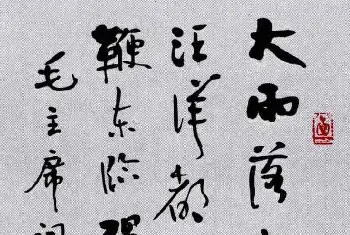 大雨落
汪洋都
鞭东临
毛主席